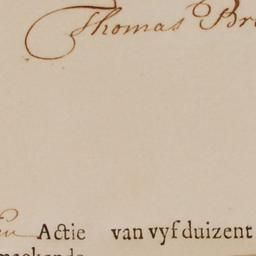 Thomas Br
en Actie van vyf duizent